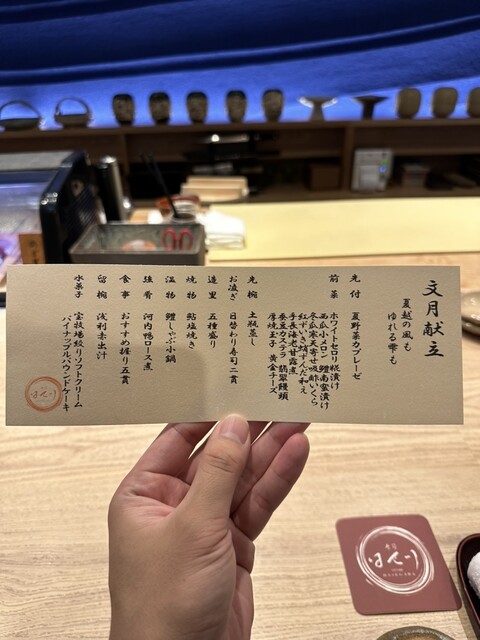 文月献立
夏越の風も
ゆれる帯も
先付 夏野菜カプレーゼ
前菜 ホワイトセロリ糀漬け
西瓜小メロン 鱧南蛮漬け
冬瓜寒天寄せ吸酢いくら
紅ずいき蛸ずんだ和え
手長海老甘露煮
蚕豆カステラ 翡翠饅頭
厚焼玉子 黄金チーズ
先椀 土瓶蒸し
お凌ぎ 日替わり寿司二貫
造里 五種盛り
焼物 鮎塩焼き
温物 鱧しゃぶ小鍋
強肴 河内鴨ロース煮
食事 おすすめ握り五貫
留椀 浅利赤出汁
水菓子 宝牧場搾りソフトクリーム
パイナップルパウンドケーキ